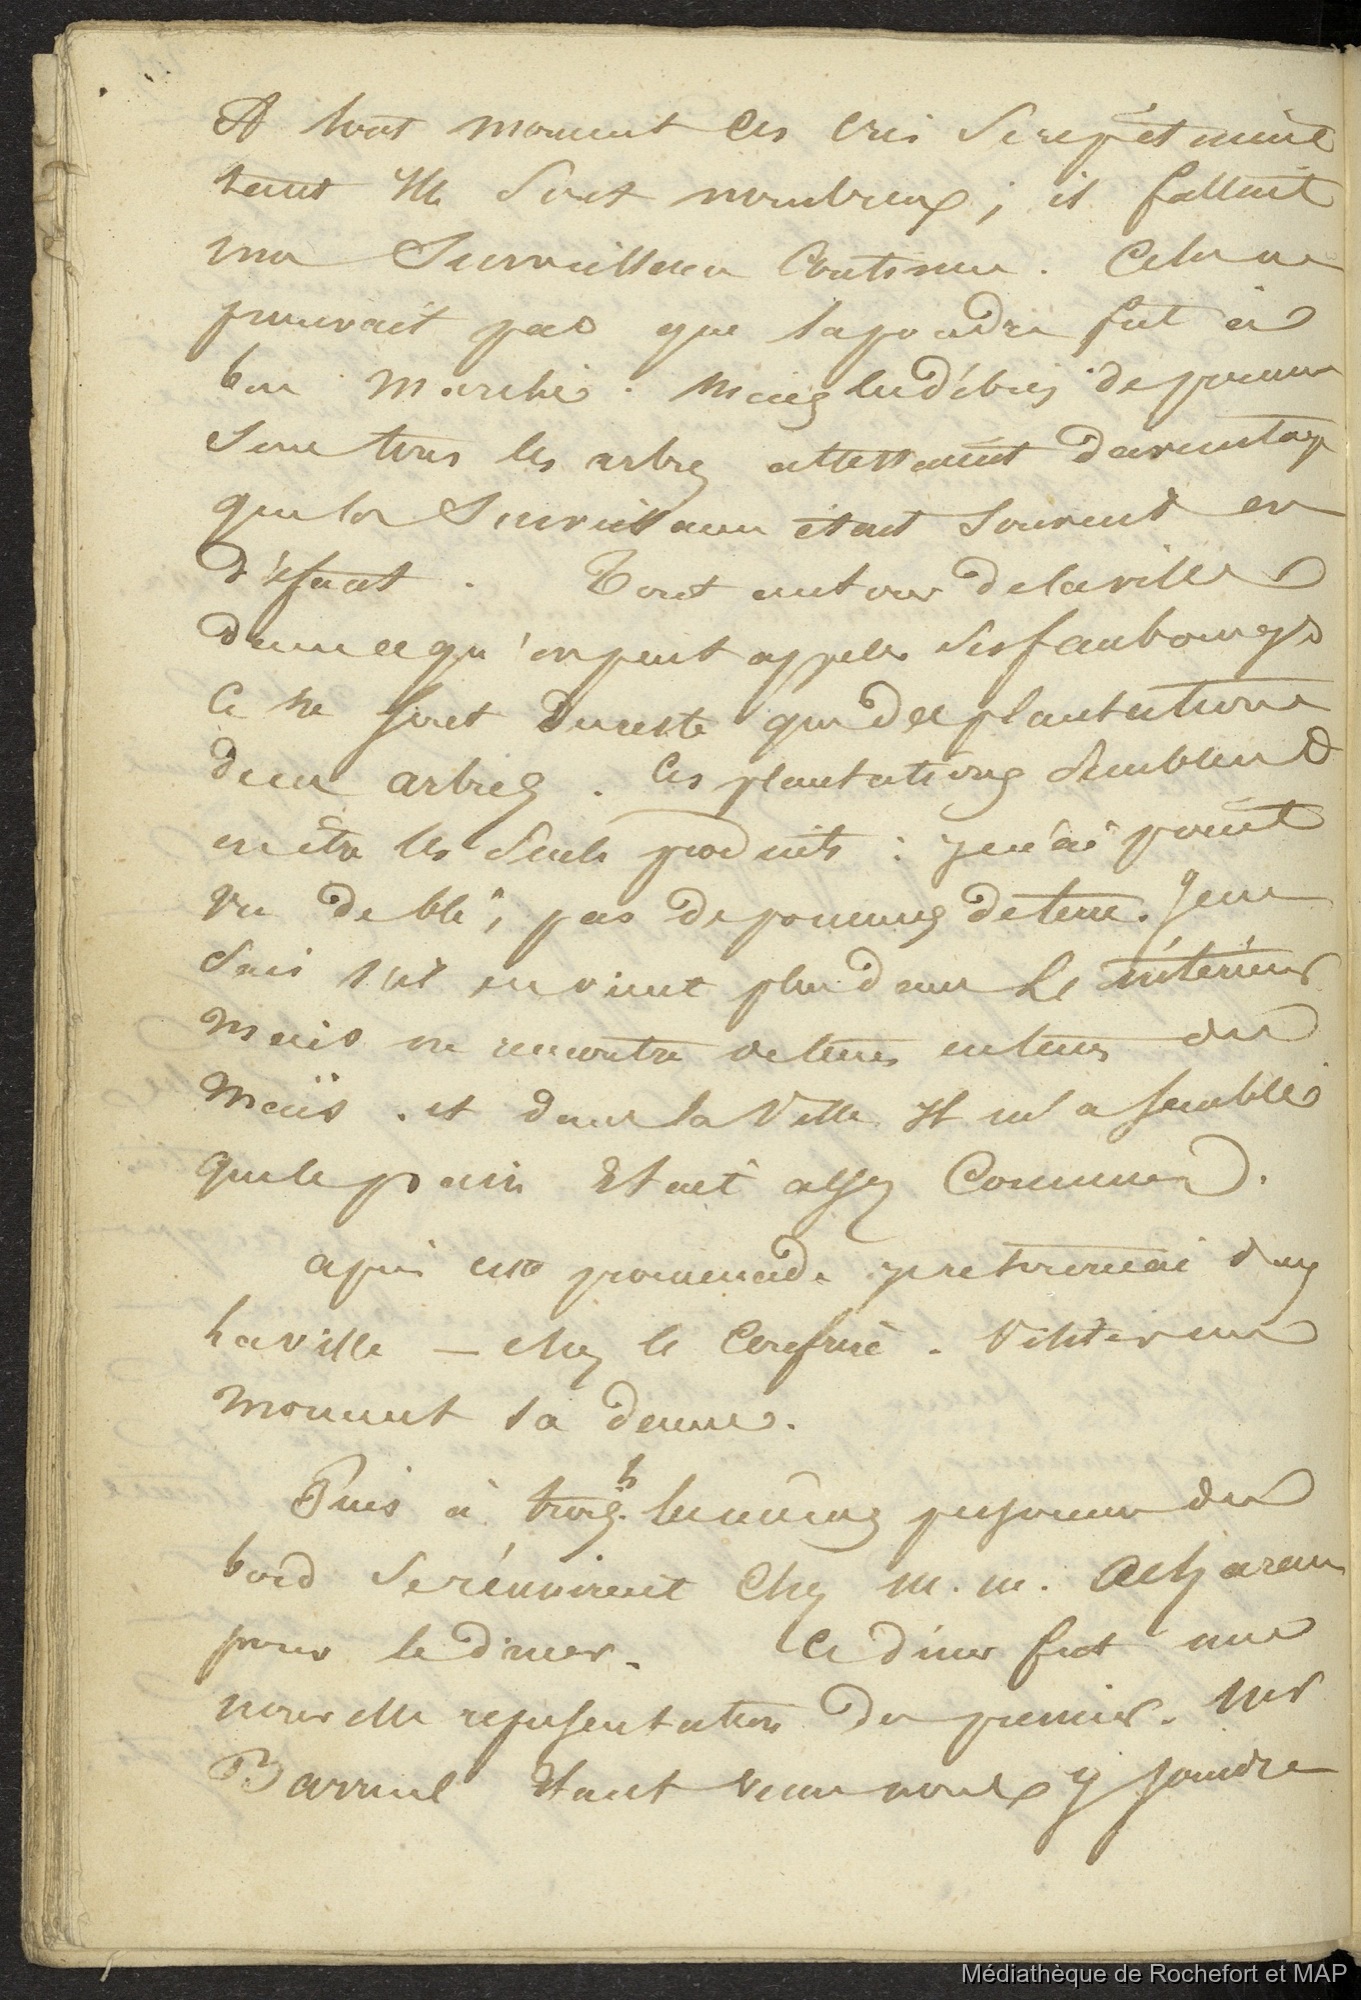 A tout moment ces cris se repétaient
tant ils sont nombreux ; il fallait
une surveillance continue. Cela ne
prouvait pas que la poudre fut à
bon marché. Mais les débris de pommes
sous tous les arbres attestaient davantage
que la surveillance était souvent en
défaut. Tout autour de la ville
dans ce qu'on peut appeler ses faubourgs
ce ne sont du reste que des plantations
de ces arbres. Ces plantations semblent
en être les seuls produits : je n'ai point
vu de blé, pas de pommes de terre. Je ne
sais s'il en vient plus dans l'intérieur
mais on rencontre de tems en tems du
maïs. et dans la ville il m'a semblé
que le pain était assez commun.
après cette promenade je retournai dans
la ville — chez le . visiter un
moment sa dame.
Puis à trois h. les mêmes personnes du
bord se réunirent chez m. m.
pour le diner. Ce diner fut une
nouvelle représentation du premier. Mr
Barruel étant venu nous y joindre